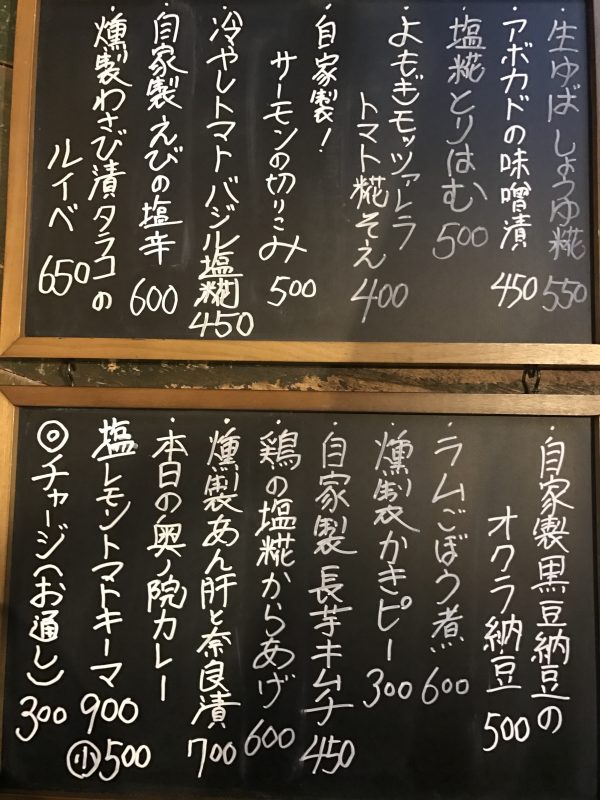 ・生ゆばしょうゆ糀 550
・アボカドの味噌漬 450
・塩糀とりはむ 500
・よもぎモッツァレラ
トマト糀そえ 400
・自家製!
サーモンの切りこみ 500
・冷やしトマトバジル塩糀 450
・自家製えびの塩辛 600
・燻製わさび漬タラコの
ルイベ 650
・自家製黒豆納豆の
オクラ納豆 500
・ラムごぼう煮 600
・燻製かきピー 300
・自家製長芋キムチ 450
・鶏の塩糀からあげ 600
・燻製あん肝と奈良漬 700
・本日の奥ノ院カレー
塩レモントマトキーマ 900
小 500
◎チャージ(お通し) 300